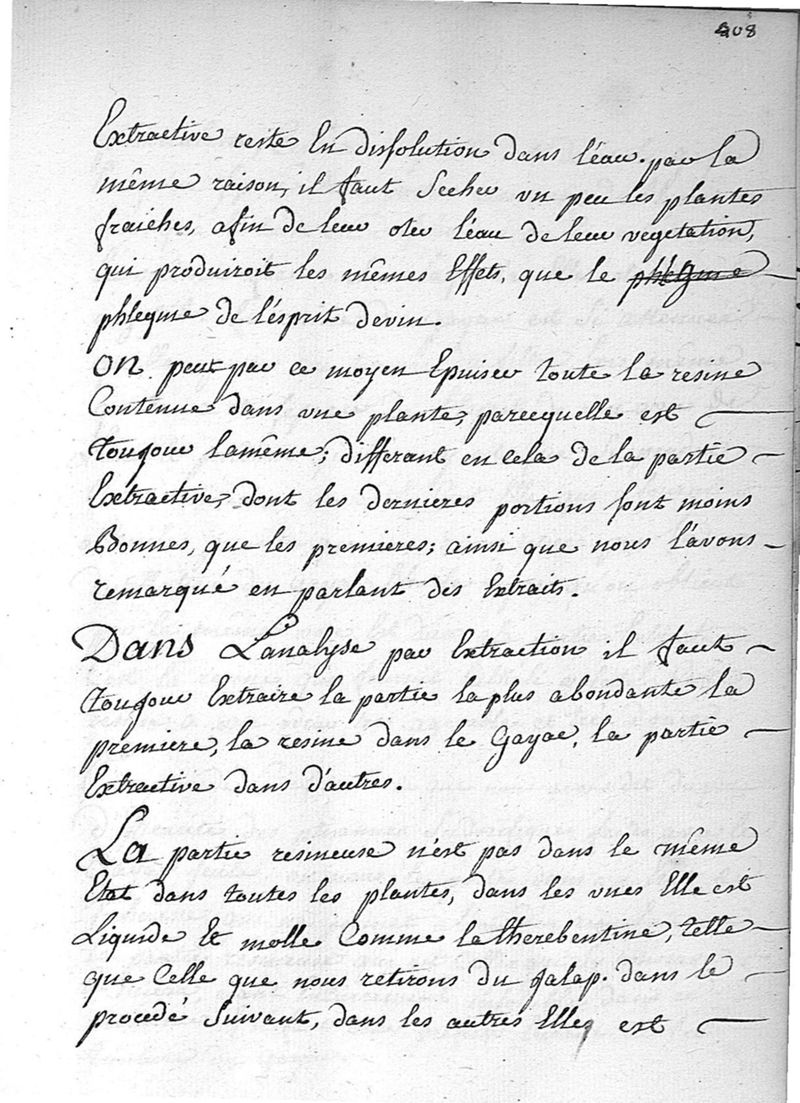 208
Extractive reste En dissolution dans l'éau. par la
même raison, il faut Secher un peu les plantes
fraiéhes, afin de leur oter l'éau de leur vegetation,
qui produiroit les mêmes Effets, que le phlegme
phlegme de l'ésprit de vin.
ON peut par ce moyen Epuiser toute la resine
Contenue dans une plante, parcequelle est
toujour lamême; differant en cela de la partie
Extractive, dont les dernieres portions sont moins
Bonnes, que les premieres; ainsi que nous l'avons
remarqué en parlant des Extraits.
Dans L'analyse par Extraction il faut
toujour Extraire la partie la plus abondante la
premiere, la resine dans le Gayac, la partie
Extractive dans d'autres.
La partie resineuse n'est pas dans le même
Etat dans toutes les plantes, dans les unes Elle est
Liquide Et molle Comme la therebentine, telle
que Celle que nous retirons du Jalap. dans le
procedé Suivant, dans les autres Elle est